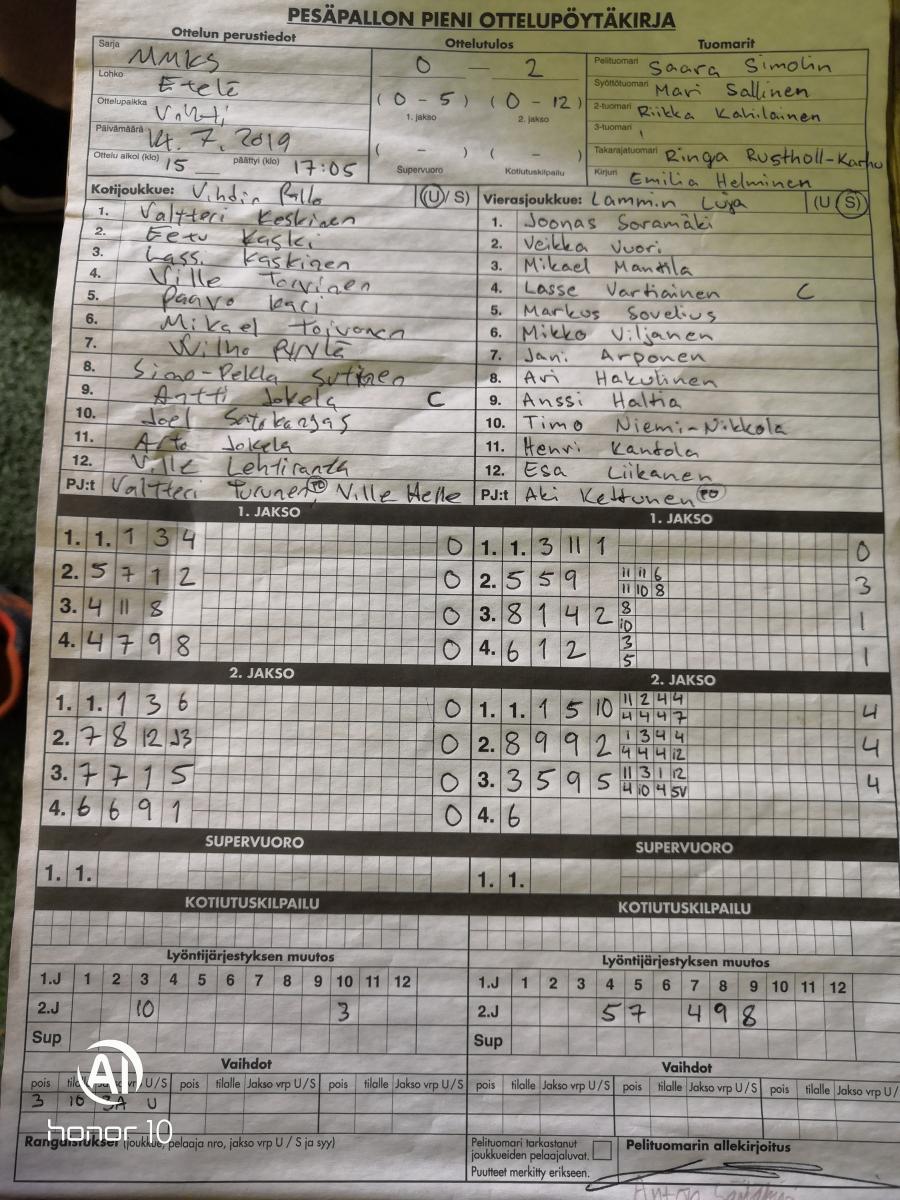 PESÄPALLON PIENI OTTELUPÖYTÄKIRJA
Ottelun perustiedot Ottelutulos Tuomarit
Sarja MMKS
Lohko Etelä
Ottelupaikka Vihti
Päivämäärä 14.7.2019
Ottelu alkoi (klo) 15 päättyi (klo) 17:05
0 — 2
(0 - 5) (0 - 12)
1. jakso 2. jakso
( - ) ( - )
Supervuoro Kotiutuskilpailu
Pelituomari Saara Simolin
Syöttötuomari Mari Sallinen
2-tuomari Riikka Kahilainen
3-tuomari
Takarajatuomari Ringa Rustholl-Karhu
Kirjuri Emilia Helminen
Kotijoukkue: Vihdin Pallo (U/S)
1. Valtteri Keskinen
2. Eetu Kaski
3. Lassi Kaskinen
4. Ville Torvinen
5. Paavo Kari
6. Mikael Toivonen
7. Wilho
8. Simo-Pekka Sutinen
9. Antti Jokela C
10. Joel Satokangas
11. Arto Jokela
12. Ville Lehtiranta
PJ:t Valtteri Turunen PD, Ville Helle
Vierasjoukkue: Lammin Luja (U S)
1. Joonas Soramäki
2. Veikka Vuori
3. Mikael Mantila
4. Lasse Vartiainen C
5. Markus Sovelius
6. Mikko Viljanen
7. Jani Arponen
8. Ari Hakulinen
9. Anssi Haltia
10. Timo Niemi-Nikkola
11. Henri Kantola
12. Esa Liikanen
PJ:t Aki Kettunen PD
1. JAKSO
1. 1. 1 3 4 0
2. 5 7 1 2 0
3. 4 11 8 0
4. 4 7 9 8 0
1. JAKSO
1. 1. 3 11 1 0
2. 5 5 9 11 11 6 3
11 10 8
3. 8 1 4 2 8 1
10
4. 6 1 2 3 1
5
2. JAKSO
1. 1. 1 3 6 0
2. 7 8 12 J3 0
3. 7 7 1 5 0
4. 6 6 9 1 0
2. JAKSO
1. 1. 1 5 10 11 2 4 4 4
4 4 4 7
2. 8 9 9 2 1 3 4 4 4
4 4 4 12
3. 3 5 9 5 11 3 1 12 4
4 10 4 5V
4. 6
SUPERVUORO
1. 1.
SUPERVUORO
1. 1.
KOTIUTUSKILPAILU
KOTIUTUSKILPAILU
Lyöntijärjestyksen muutos
1.J 1 2 3 4 5 6 7 8 9 10 11 12
2.J 10 3
Sup
Lyöntijärjestyksen muutos
1.J 1 2 3 4 5 6 7 8 9 10 11 12
2.J 5 7 4 9 8
Sup
Vaihdot
pois tilalle Jakso vrp U/S pois tilalle Jakso vrp U/S pois tilalle Jakso vrp U/S
3 10 3A U
Vaihdot
pois tilalle Jakso vrp U/S pois tilalle Jakso vrp U/S pois tilalle Jakso vrp U/
Rangaistukset (joukkue, pelaaja nro, jakso vrp U / S ja syy)
Pelituomari tarkastanut
joukkueiden pelaajaluvat.
Puutteet merkitty erikseen.
Pelituomarin allekirjoitus
AI
honor 10